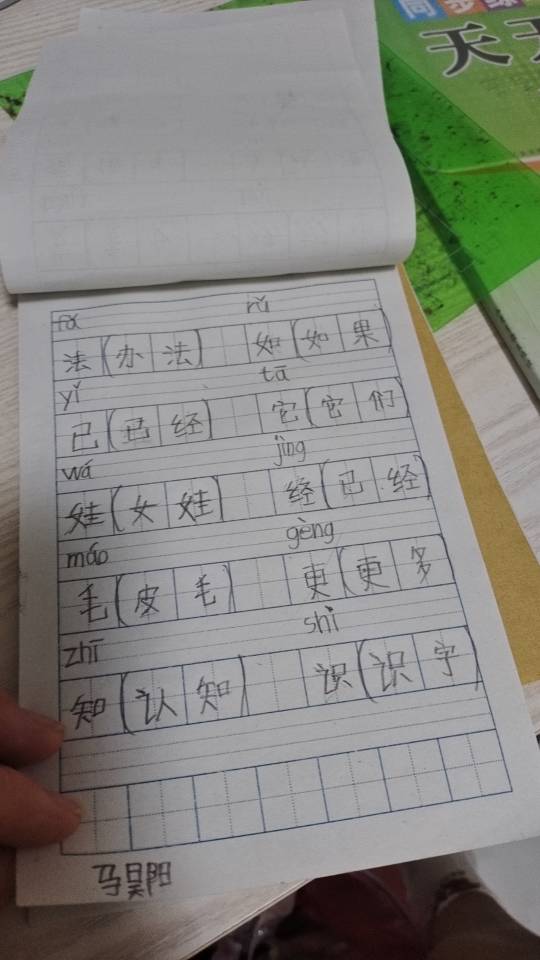 同步练
天天
fǎ rú
法(办法) 如(如果)
yǐ tā
已(已经) 它(它们)
wá jīng
娃(女娃) 经(已经)
máo gèng
毛(皮毛) 更(更多)
zhī shí
知(认知) 识(识字)
马昊阳